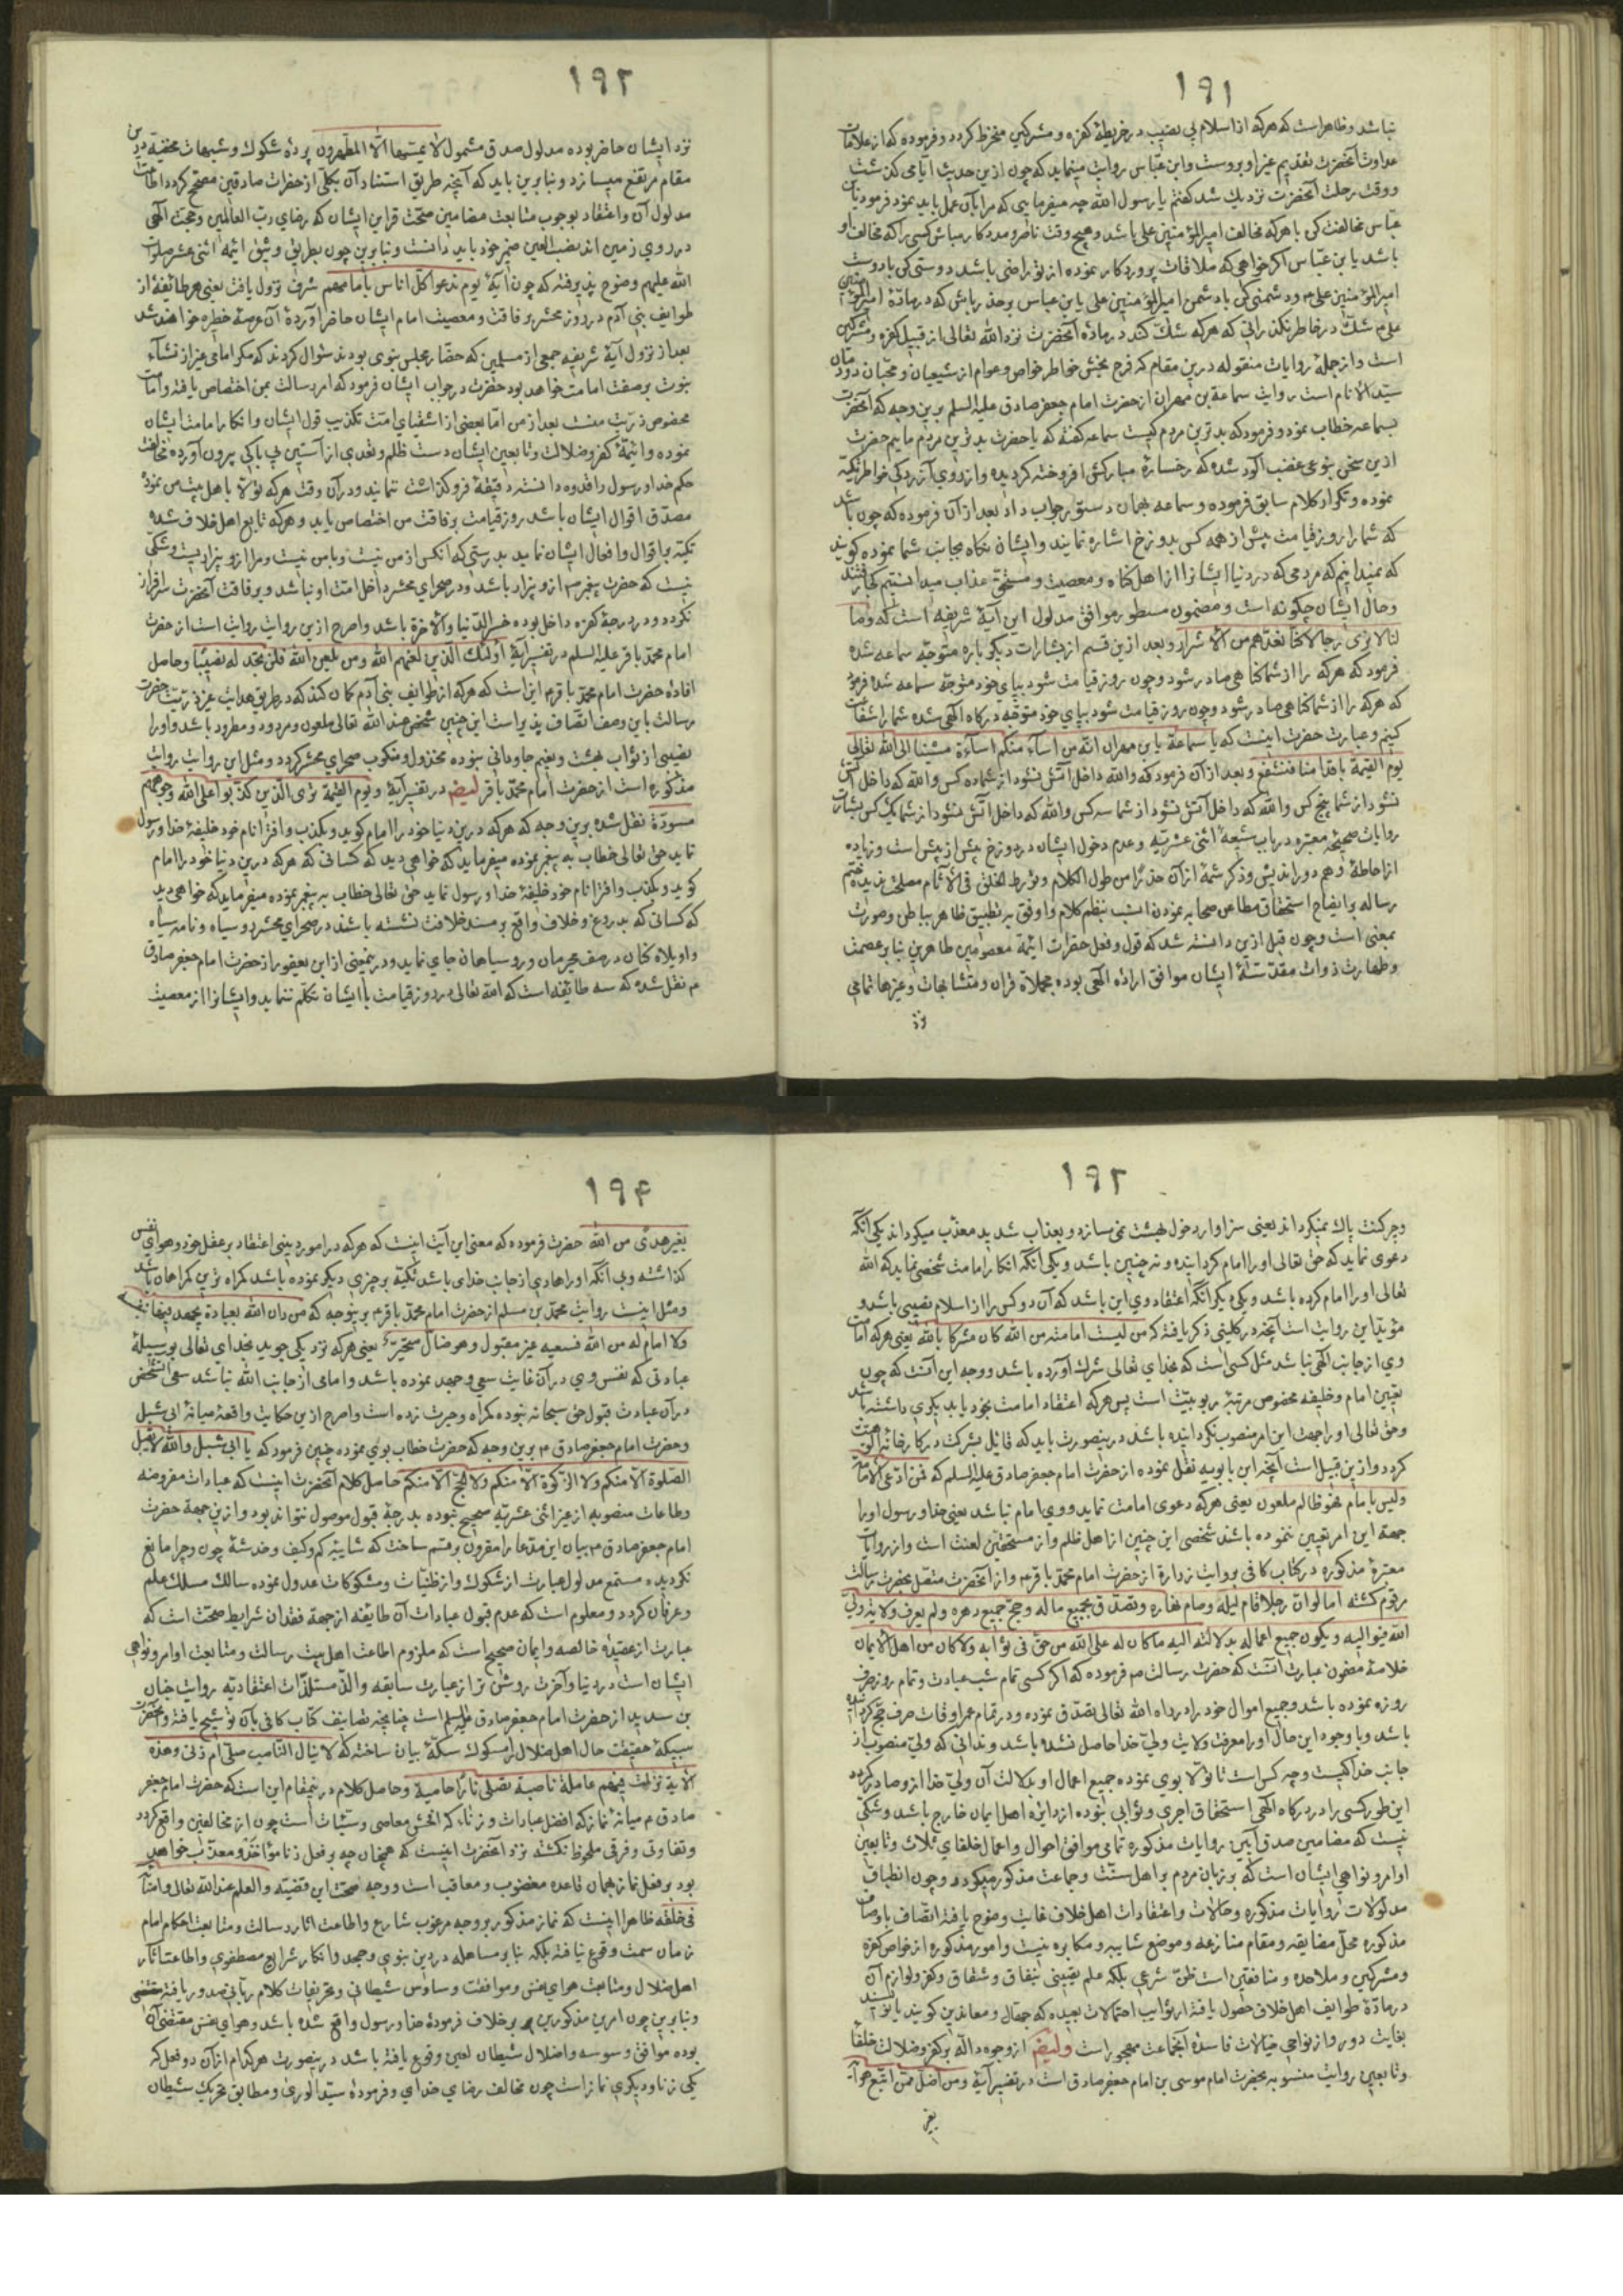 ۱۹۱
نباشد و ظاهر است که هر که از اسلام بی نصیب در خریطهٔ کفره و مشرکین منخرط کردد و فرموده که از علامات
عداوت آنحضرت تقدیم غیر او بروست و ابن عباس روایت مینماید که چون ازین حدیث ایامی کذشت
و وقت رحلت آنحضرت نزدیک شد کفتم یا رسول الله چه میفرمایی که مرا بآن عمل باید نمود فرمود یا بن
عباس مخالفت کن با هر که مخالف امیرالمؤمنین علی باشد و هیچ وقت ناصر و مددکار مباش کسی را که مخالف او
باشد یا بن عباس اکر خواهی که ملاقات پروردکار نموده از تو راضی باشد دوستی کن با دوست
امیرالمؤمنین علی و دشمنی کن با دشمن امیرالمؤمنین علی یا بن عباس بر حذر باش که در مادهٔ امیرالمؤمنین
علی شک در خاطر نکذرانی که هر که شک کند در مادهٔ آنحضرت نزد الله تعالی از قبیل کفره و مشرکین
است و از جملهٔ روایات منقوله درین مقام که فرح بخش خاطر خواص و عوام از شیعیان و محبان دودمان
سید الانام است روایت سماعة بن مهران از حضرت امام جعفر صادق علیه السلم برین وجه که آنحضرت
بسماعه خطاب نمود و فرمود که بدترین مردم کیست سماعه کفته که یا حضرت بدترین مردم ماییم حضرت
ازین سخن بنوعی غضب آلود شده که رخسارهٔ مبارکش افروخته کردیده و از روی آزردکی خواطر تکیه
نموده و تکرار کلام سابق فرموده و سماعه بهمان دستور جواب داد بعد از آن فرموده که چون باشد
که شما را روز قیامت پیش از همه کس بدوزخ اشاره نمایند و ایشان نکاه بجانب شما نموده کویند
که نمیدانیم که مردمی که در دنیا ایشانرا از اهل کناه و معصیت و مستحق عذاب میدانستیم کجا رفتند
و حال ایشان چکونه است و مضمون مسطور موافق مدلول این آیهٔ شریفه است که وما
لنا لا نری رجالا کنا نعدهم من الاشرار و بعد ازین قسم از بشارات دیکر باره متوجه سماعه شده
فرمود که هر که را از شما کناهی صادر شود و چون روز قیامت شود بپای خود متوجه سماعه شده فرمود
که هر که را از شما کناهی صادر شود و چون روز قیامت شود بپای خود متوجه درکاه الهی شده شما را شفاعت
کنیم و عبارت حضرت اینست که یا سماعة یا بن مهران انه من اساء منکم اساءة مشینا الی الله تعالی
یوم القیمة باقدامنا فنشفع و بعد از آن فرمود که والله داخل آتش نشود از شما ده کس والله که داخل آتش
نشود از شما پنج کس والله که داخل آتش نشود از شما سه کس والله که داخل آتش نشود از شما یک کس بشارت
روایات صحیحهٔ معتبره در باب شیعهٔ اثنی عشریه و عدم دخول ایشان در دوزخ بیش از بیش است و زیاده
از احاطهٔ وهم دور اندیش و ذکر شمهٔ از آن حذرا من طول الکلام و
رساله بر ایضاح استحقاق مطاعن صحابه نمودن انسب بنظم کلام و اوفق به تطبیق ظاهر بباطن و صورت
بمعنی است و چون قبل ازین دانسته شد که قول و فعل حضرات ائمهٔ معصومین طاهرین بنا بر عصمت
و طهارت ذوات مقدسهٔ ایشان موافق ارادهٔ الهی بوده مجملاة قران و متشابهات و غیرها تمامی
نزد
۱۹۲
نزد ایشان حاضر بوده مدلول صدق مشمول لا یمسها الا المطهرون پردهٔ شکوک و شبهات مخفیه درین
مقام مرتفع میسازد و بنا برین باید که آنچه طریق استناد آن بیکی از حضرات صادقین مصحح کردد اطاعت
مدلول آن و اعتقاد بوجوب متابعت مضامین صحت قراین ایشان که رضای رب العالمین و حجت الهی
در روی زمین اند نصب العین ضمیر خود باید دانست و بنا برین چون بطریق وثیق ائمهٔ اثنی عشر صلوات
الله علیهم وضوح پذیرفته که چون آیهٔ یوم ندعوا کل اناس بامامهم شرف نزول یافت یعنی هر طائفهٔ از
طوایف بنی آدم در روز محشر برفاقت و معصیت امام ایشان حاضر آوردهٔ آن عرصهٔ خطیره خواهند شد
بعد از نزول آیهٔ شریفه جمعی از مسلمین که حضار مجلس نبوی بودند سؤال کردند که مکر امامی غیر از نشاء
نبوت بر صفت امامت خواهد بود حضرت در جواب ایشان فرمود که امر رسالت بمن اختصاص یافته و امامت
مخصوص ذریت منست بعد از من اما بعضی از اشقیای امت تکذیب قول ایشان و انکار امامت ایشان
نموده و ائمهٔ کفر و ضلالت و تابعین ایشان دست ظلم و تعدی از آستین بی باکی بیرون آورده مخالفت
حکم خدا و رسول را قدوه دانسته دقیقهٔ فروکذاشت ننمایند و در آن وقت هر که تولا با هل بیت من نموده
مصدق اقوال ایشان باشد روز قیامت برفاقت من اختصاص یابد و هر که تابع اهل خلاف شده
تکیه بر اقوال و افعال ایشان نماید بدرستی که آنکس از من نیست و با من نیست و مرا ازو بیزاریست و شکی
نیست که حضرت پیغمبر ازو بیزار باشد و در صحرای محشر داخل امت او نباشد و برفاقت آنحضرت سرافراز
نکردد و در درجهٔ کفره داخل بوده خسر الدنیا والاخرة باشد و اصرح ازین روایت روایت است از حضرت
امام محمد باقر علیه السلم در تفسیر آیهٔ اولئک الذین لعنهم الله ومن یلعن الله فلن تجد له نصیبا و حاصل
افادهٔ حضرت امام محمد باقر این است که هر که از طوایف بنی آدم کمان کند که در طریق هدایت غیر ذریت حضرت
رسالت باین وصف اتصاف پذیر است این چنین شخص عند الله تعالی ملعون و مردود و مطرود باشد و او را
نصیبی از ثواب بهشت و نعیم جاودانی نبوده مخذول و منکوب صحرای محشر کردد و مثل این روایت روایت
مذکوره است از حضرت امام محمد باقر ایضا در تفسیر آیهٔ ویوم القیمة تری الذین کذبوا علی الله وجوههم
مسودة نقل شده برین وجه که هر که درین دنیا خود را امام کوید و بکذب و افترا نام خود خلیفهٔ خدا و رسول
نماید حق تعالی خطاب به پیغمبر نموده میفرماید که خواهی دید که کسانی که هر که درین دنیا خود را امام
کوید و بکذب و افترا نام خود خلیفهٔ خدا و رسول نماید حق تعالی خطاب به پیغمبر نموده میفرماید که خواهی دید
که کسانی که بدروغ و خلاف واقع بر مسند خلافت نشسته باشند در صحرای محشر رو سیاه و نامه سیاه
واویلاه کنان در صف مجرمان و رو سیاهان جای نماید و درینمعنی از ابن یعفور از حضرت امام جعفر صادق
م نقل شده که سه طائفه است که الله تعالی در روز قیامت با ایشان تکلم ننماید و ایشانرا از معصیت
۱۹۳
و چرکنت پاک نمیکرداند یعنی سزاوار دخول بهشت نمیسازد و بعذاب شدید معذب میکرداند یکی آنکه
دعوی نماید که حق تعالی او را امام کردانیده و نه چنین باشد و یکی آنکه انکار امامت شخصی نماید که الله
تعالی او را امام کرده باشد و یکی دیکر آنکه اعتقاد وی این باشد که آن دو کس را از اسلام نصیبی باشد و
مؤید این روایت است آنچه در کلینی ذکر یافته که من لیست امامته من الله کان مشرکا بالله یعنی هر که امامت
وی از جانب الهی نباشد مثل کسی است که بخدای تعالی شرک آورده باشد و وجه این آنست که چون
تعیین امام و خلیفه مخصوص مرتبهٔ ربوبیت است پس هر که اعتقاد امامت بخود یا بدیکری داشته باشد
و حق تعالی او را جهت این امر منصوب نکردانیده باشد درینصورت باید که قائل بشرکت در کارخانه الوهیت
کردد و ازین قبیل است آنچه ابن بابویه نقل نموده از حضرت امام جعفر صادق علیه السلم که فمن ادعی الامامة
ولیس بامام فهو ظالم ملعون یعنی هر که دعوی امامت نماید و وی امام نباشد یعنی خدا و رسول او را
جهة این امر تعیین ننموده باشند شخصی این چنین از اهل ظلم و از مستحقین لعنت است و از روایات
معتبرهٔ مذکوره در کتاب کافی بروایت زرارة از حضرت امام محمد باقر و از آنحضرت متصل بحضرت رسالت
مرقوم کشته اما لوان رجلا قام لیله وصام نهاره وتصدق بجمیع ماله وحج جمیع دهره ولم یعرف ولایة ولی
الله فیوالیه ویکون جمیع اعماله بدلالته الیه ماکان له علی الله من حق فی ثوابه ولا کان من اهل الایمان
خلاصهٔ مضمون عبارت آنست که حضرت رسالت ص فرموده که اکر کسی تمام شب عبادت و تمام روز صرف
روزه نموده باشد و جمیع اموال خود را در راه الله تعالی تصدق نموده و در تمام عمر اوقات صرف حج کردانیده
باشد و با وجود این حال او را معرفت ولایت ولی خدا حاصل نشده باشد و ندانی که ولی منصوب از
جانب خدا کیست و چه کس است تا تولا بوی نموده جمیع اعمال او بدلالت آن ولی خدا ازو صادر کردد
این طور کسی را در درکاه الهی استحقاق اجری و ثوابی نبوده از دایرهٔ اهل ایمان خارج باشد و شکی
نیست که مضامین صدق آیین روایات مذکوره تمامی موافق احوال و اعمال خلفای ثلاث و تابعین
اوامر و نواهی ایشان است که بر زبان مردم بر اهل سنت و جماعت مذکور میکردد و چون انطباق
مدلولات روایات مذکوره و حالات و اعتقادات اهل خلاف غایت وضوح یافته اتصاف باوصاف
مذکوره محل مضایقه و مقام منازعه و موضع شایبه و مکابره نیست و امور مذکوره از خواص کفره
و مشرکین و ملاحده و منافقین است ظن شرعی بلکه علم یقینی بنفاق و شقاق و کفر و لوازم آن
در مادهٔ طوایف اهل خلاف حصول یافته احتمالات بعیده که جهال و معاندین کویند یا نویسند
بغایت دور و از نواهی خیالات فاسدهٔ آنجماعت مهجور است وایضا از وجوه داله بر کفر و ضلالت خلفا
و تابعین روایت منسوبه بحضرت امام موسی بن امام جعفر صادق است در تفسیر آیهٔ ومن اضل ممن اتبع هواه
بغیر
۱۹۴
بغیر هدی من الله حضرت فرموده که معنی این آیت اینست که هر که در امور دینی اعتقاد بر عقل خود و هوای نفس
کذاشته و بی آنکه او را هادی از جانب خدای باشد تکیه بر چیزی دیکر نموده باشد کمراه ترین کمراهان باشد
و مثل اینست روایت محمد بن مسلم از حضرت امام محمد باقر برینوجه که من دان الله بعبادة یجهد فیها نفسه
ولا امام له من الله فسعیه غیر مقبول وهو ضال متحیر یعنی هر که نزدیکی جوید بخدای تعالی بوسیلهٔ
عبادتی که نفس وی در آن غایت سعی و جهد نموده باشد و امامی از جانب الله نباشد سعی آنشخص
در آن عبادت قبول حق سبحانه نبوده کمراه و حیرت زده است و اصرح ازین حکایت واقعهٔ میانهٔ ابی شبل
و حضرت امام جعفر صادق م برین وجه که حضرت خطاب بوی نموده چنین فرمود که یا ابی شبل والله لا تقبل
الصلوة الا منکم ولا الزکوة الا منکم ولا الحج الا منکم حاصل کلام آنحضرت اینست که عبادات مفروضه
و طاعات منصوبه از غیر اثنی عشریه صحیح نبوده بدرجهٔ قبول موصول نتواند بود و ازین جهة حضرت
امام جعفر صادق م بیان این مدعا را مقرون بقسم ساخت که شایبهٔ کم و کیف و خدشهٔ چون و چرا مانع
نکردیده مستمع مدلول عبارت از شکوک و از ظنیات و مشکوکات عدول نموده سالک مسلک علم
و عرفان کردد و معلوم است که عدم قبول عبادات آن طایفه از جهة فقدان شرایط صحت است که
عبارت از عقیدهٔ خالصه و ایمان صحیح است که ملزوم اطاعت اهل بیت رسالت و متابعت اوامر و نواهی
ایشان است در دنیا و آخرت روشن تر از عبارت سابقه و الذ مستلذات اعتقادیه روایت حنان
بن سدید از حضرت امام جعفر صادق علیه السلم است چنانچه تضانیف کتاب کافی بآن توشیح یافته و آنحضرت
سبیکهٔ حقیقت حال اهل ضلال را مسکوک سکهٔ بیان ساخته که لا یبال الناصب صلی ام زنی وهذه
الایة نزلت فیهم عاملة ناصبة تصلی نارا حامیة و حاصل کلام درینمقام این است که حضرت امام جعفر
صادق م میانهٔ نماز که افضل عبادات و زنا، که افحش معاصی و سیئات است چون از مخالفین واقع کردد
و تفاوتی و فرقی ملحوظ نکشته نزد آنحضرت اینست که همچنان چه بر فعل زنا مؤاخذ و معذب خواهد
بود بر فعل نماز بهمان قاعده مغضوب و معاقب است و وجه صحت این قضیه والعلم عند الله تعالی وامنائه
فی خلقه ظاهرا اینست که نماز مذکور بر وجه مرغوب شارع و اطاعت اثار رسالت و متابعت احکام امام
زمان سمت وقوع نیافته بلکه بنا بر مساهله در دین نبوی و جحد و انکار شرایع مصطفوی و اطاعت آثار
اهل ضلال و متابعت هوای نفس و موافقت وساوس شیطانی و تحریفات کلام ربانی صدور یافته
و بنا برین چون امرین مذکورین بر خلاف فرمودهٔ خدا و رسول واقع شده باشد و هوای نفس مقتضی آن
بوده موافق وسوسه و اضلال شیطان لعین وقوع یافته باشد درینصورت هر کدام از آن دو فعل که
یکی زنا و دیکری نماز است چون مخالف رضای خدای و فرمودهٔ سید الوری و مطابق تحریک شیطان